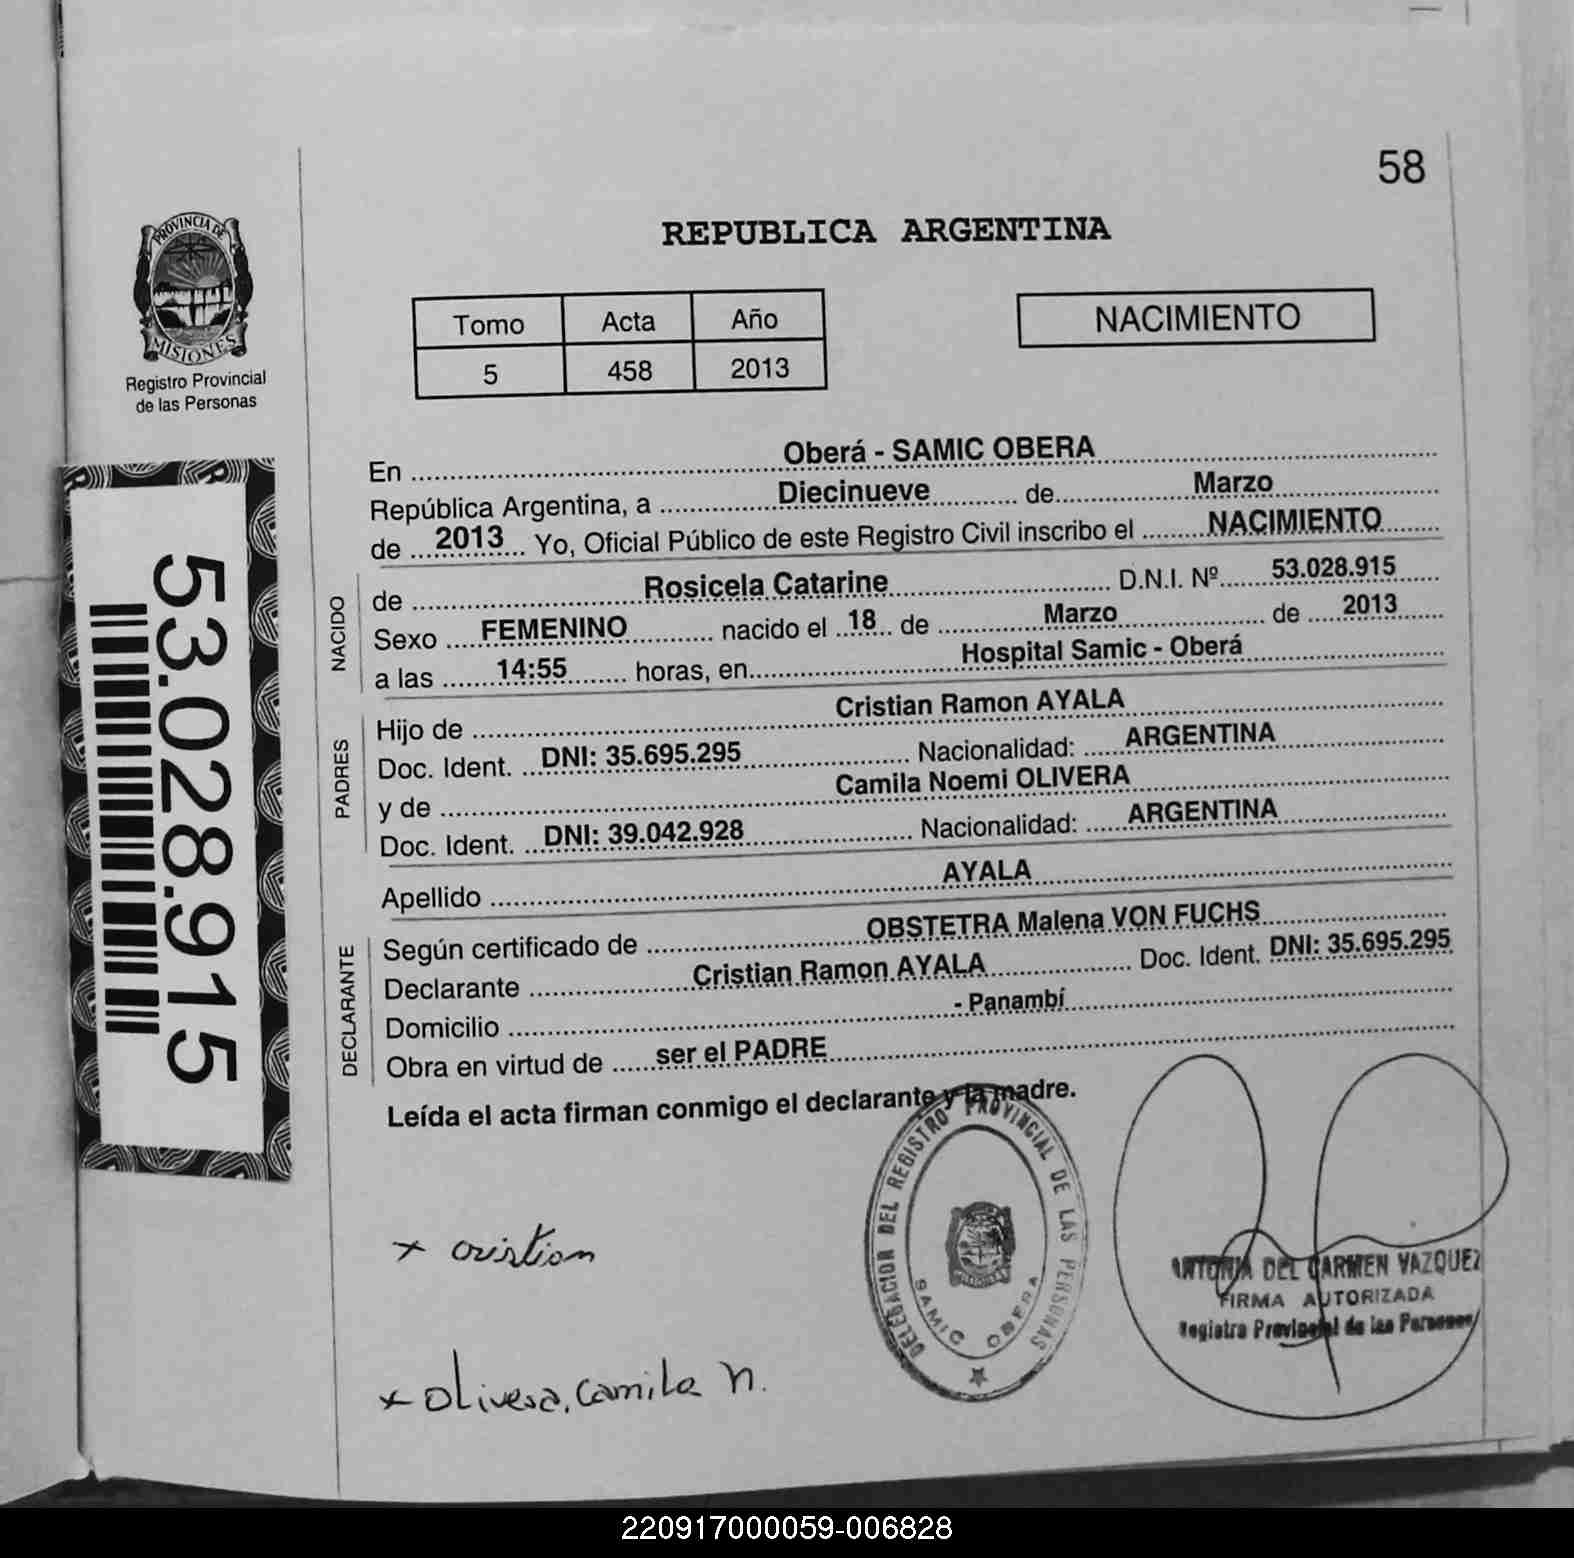 58
PROVINCIA DE
MISIONES
Registro Provincial
de las Personas
REPUBLICA ARGENTINA
Tomo Acta Año
5 458 2013
NACIMIENTO
53.028.915
En Oberá - SAMIC OBERA
República Argentina, a Diecinueve de Marzo
de 2013 Yo, Oficial Público de este Registro Civil inscribo el NACIMIENTO
NACIDO
de Rosicela Catarine D.N.I. Nº 53.028.915
Sexo FEMENINO nacido el 18 de Marzo de 2013
a las 14:55 horas, en Hospital Samic - Oberá
PADRES
Hijo de Cristian Ramon AYALA
Doc. Ident. DNI: 35.695.295 Nacionalidad: ARGENTINA
y de Camila Noemi OLIVERA
Doc. Ident. DNI: 39.042.928 Nacionalidad: ARGENTINA
Apellido AYALA
DECLARANTE
Según certificado de OBSTETRA Malena VON FUCHS
Declarante Cristian Ramon AYALA Doc. Ident. DNI: 35.695.295
Domicilio - Panambí
Obra en virtud de ser el PADRE
Leída el acta firman conmigo el declarante y la madre.
x cristian
x Olivera, Camila N.
DELEGACION DEL REGISTRO PROVINCIAL DE LAS PERSONAS
SAMIC OBERA
ANTONIA DEL CARMEN VAZQUEZ
FIRMA AUTORIZADA
Registro Provincial de las Personas
220917000059-006828